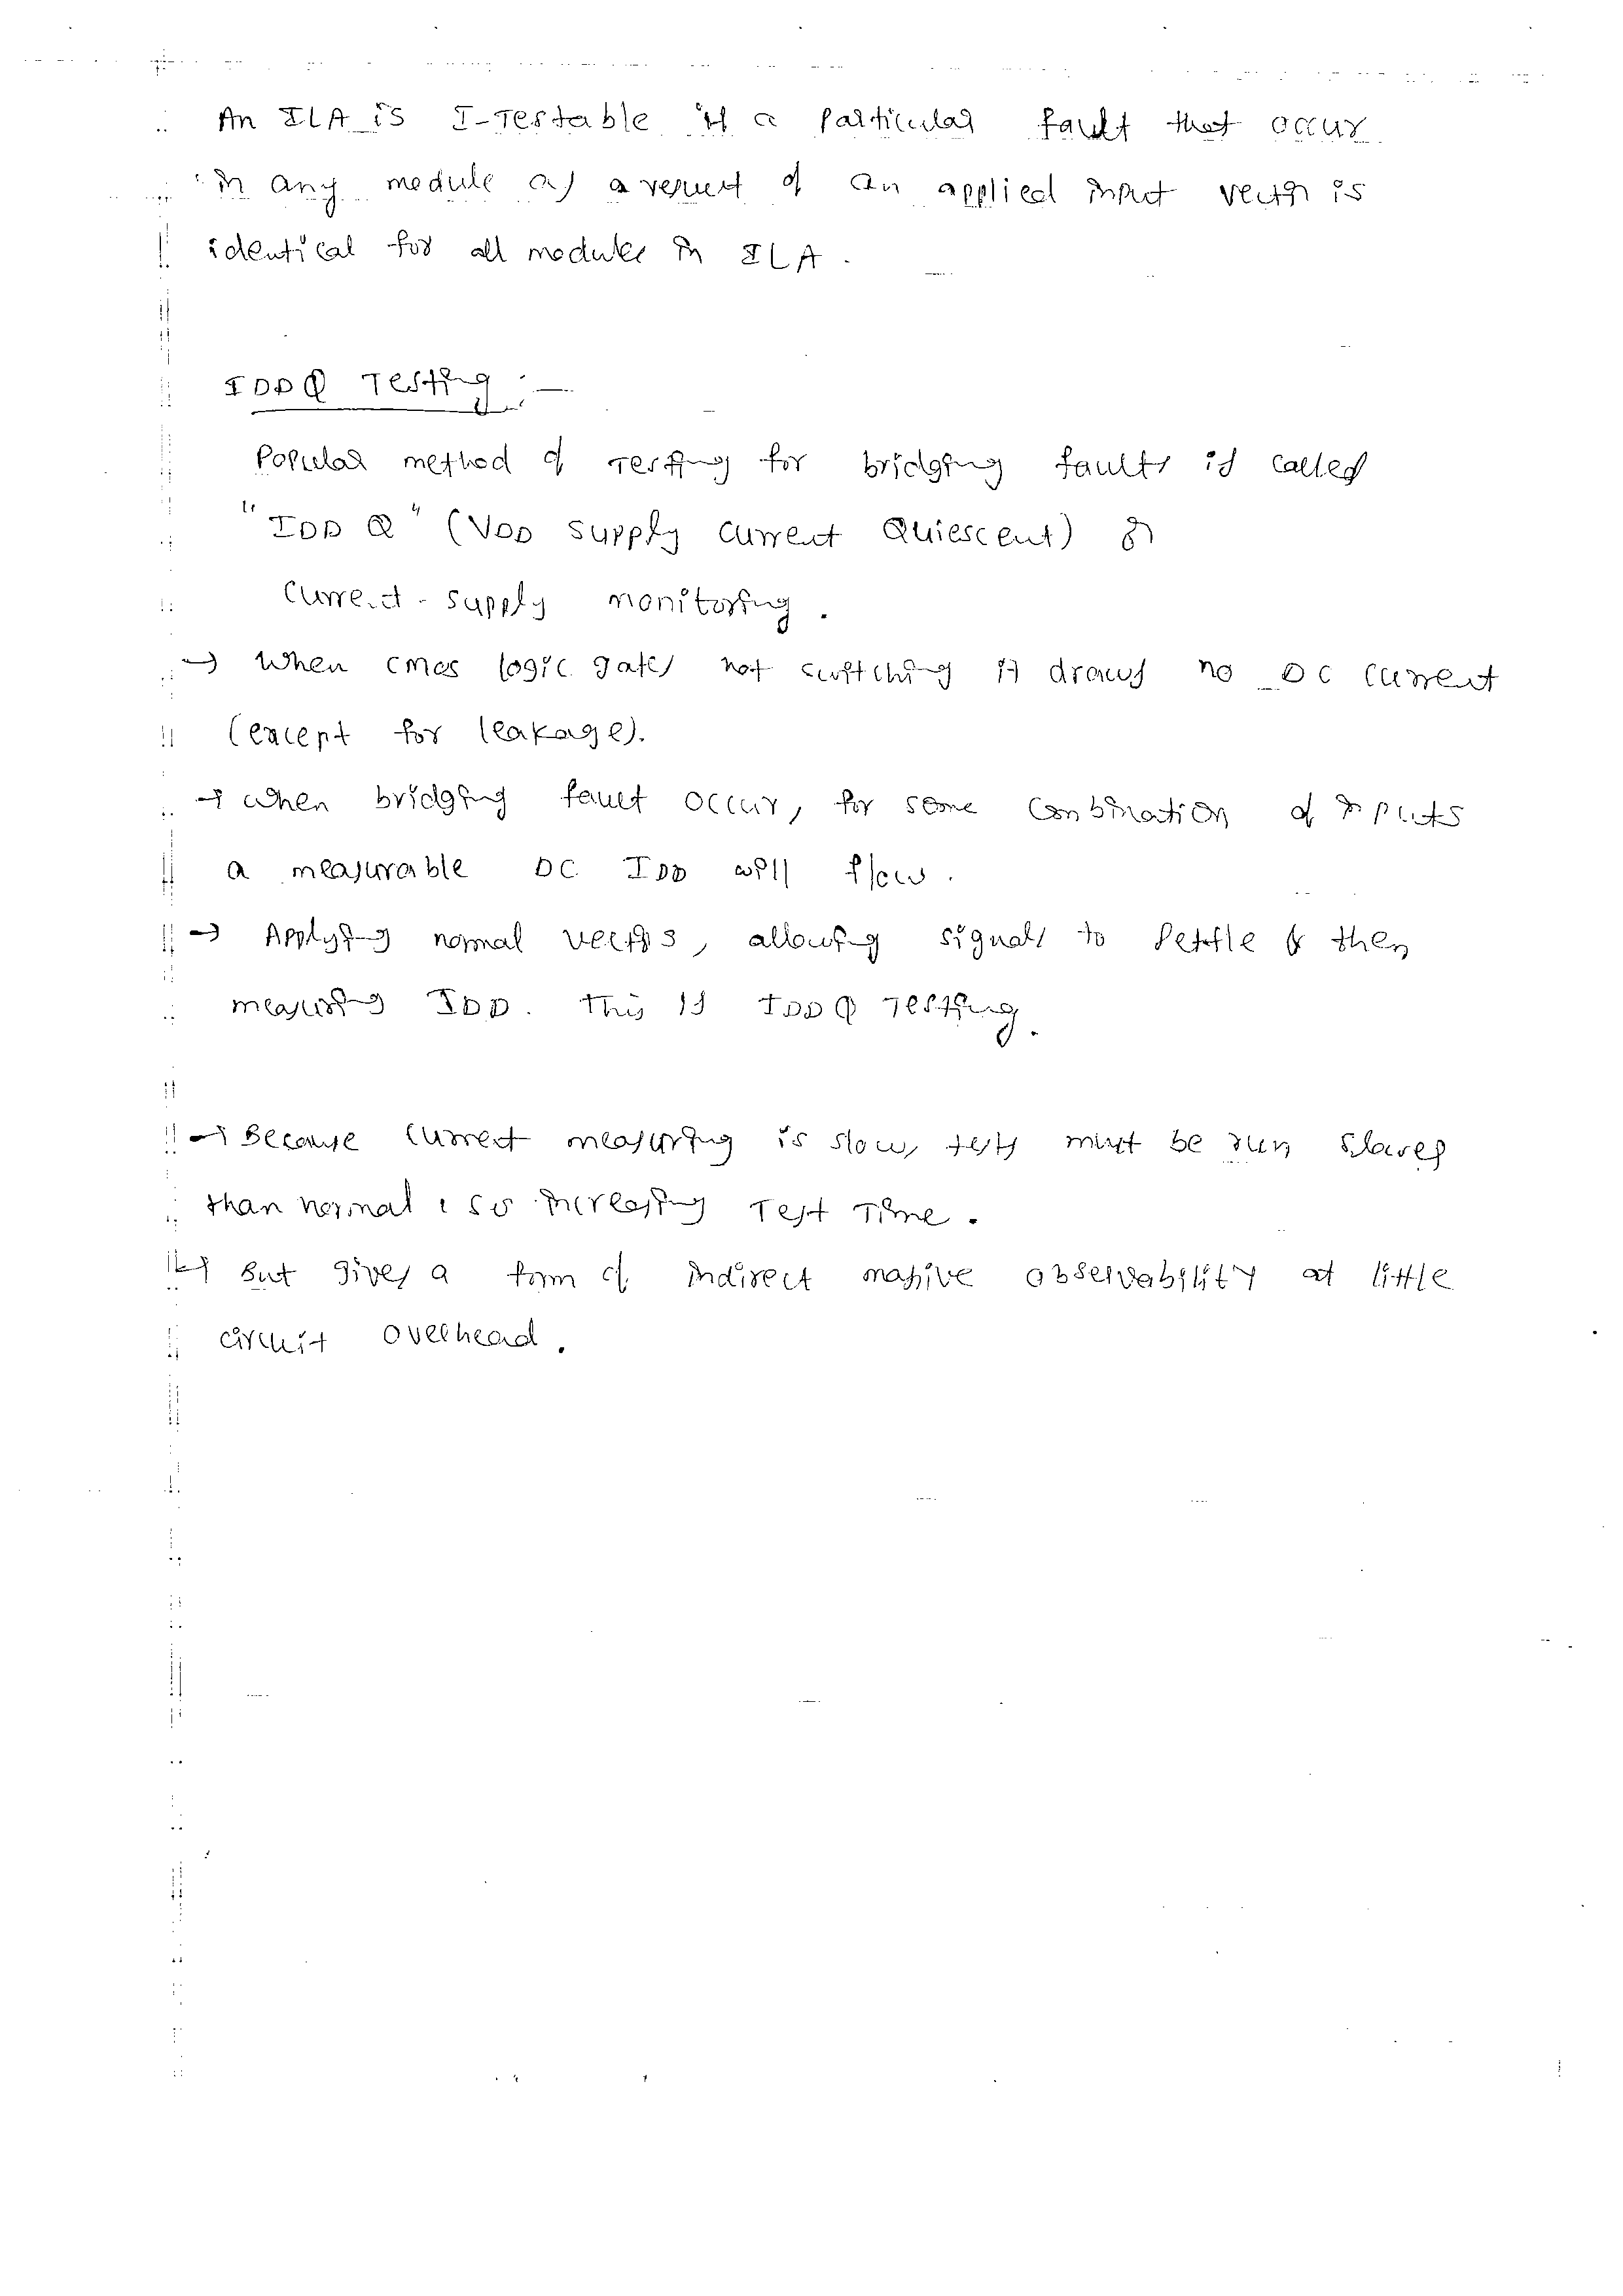 An ILA is I-Testable if a particular fault that occur
in any module as a result of an applied input vector is
identical for all modules in ILA.
IDDQ Testing :-
Popular method of Testing for bridging faults is called
"IDD Q" (VDD supply current Quiescent) or
Current-supply monitoring.
→ When cmos logic gates not switching it draws no DC current
(except for leakage).
→ when bridging fault occur, for some combination of inputs
a measurable DC IDD will flow.
→ Applying normal vectors, allowing signals to settle & then
measuring IDD. This is IDDQ Testing.
→ Because current measuring is slow, tests must be run slower
than normal, so increasing Test Time.
→ But gives a form of indirect massive observability at little
circuit overhead.